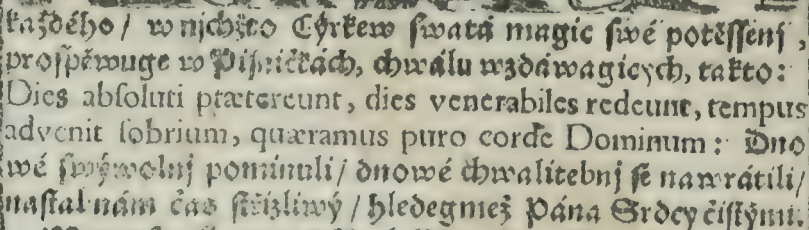 každého / w njchžto Cýrkew swatá magic swé potěssenj,
prospěwuge w Pjsničkách, chwálu wzdáwagicých, takto:
Dies absoluti prætereunt, dies venerabiles redeunt, tempus
advenit sobrium, quæramus puro corde Dominum: Dno-
wé swýwolnj pominuli / dnowé chwalitebnj se nawrátili /
nastal nám čas střizliwý / hledegmež Pána Srdcy čistými.